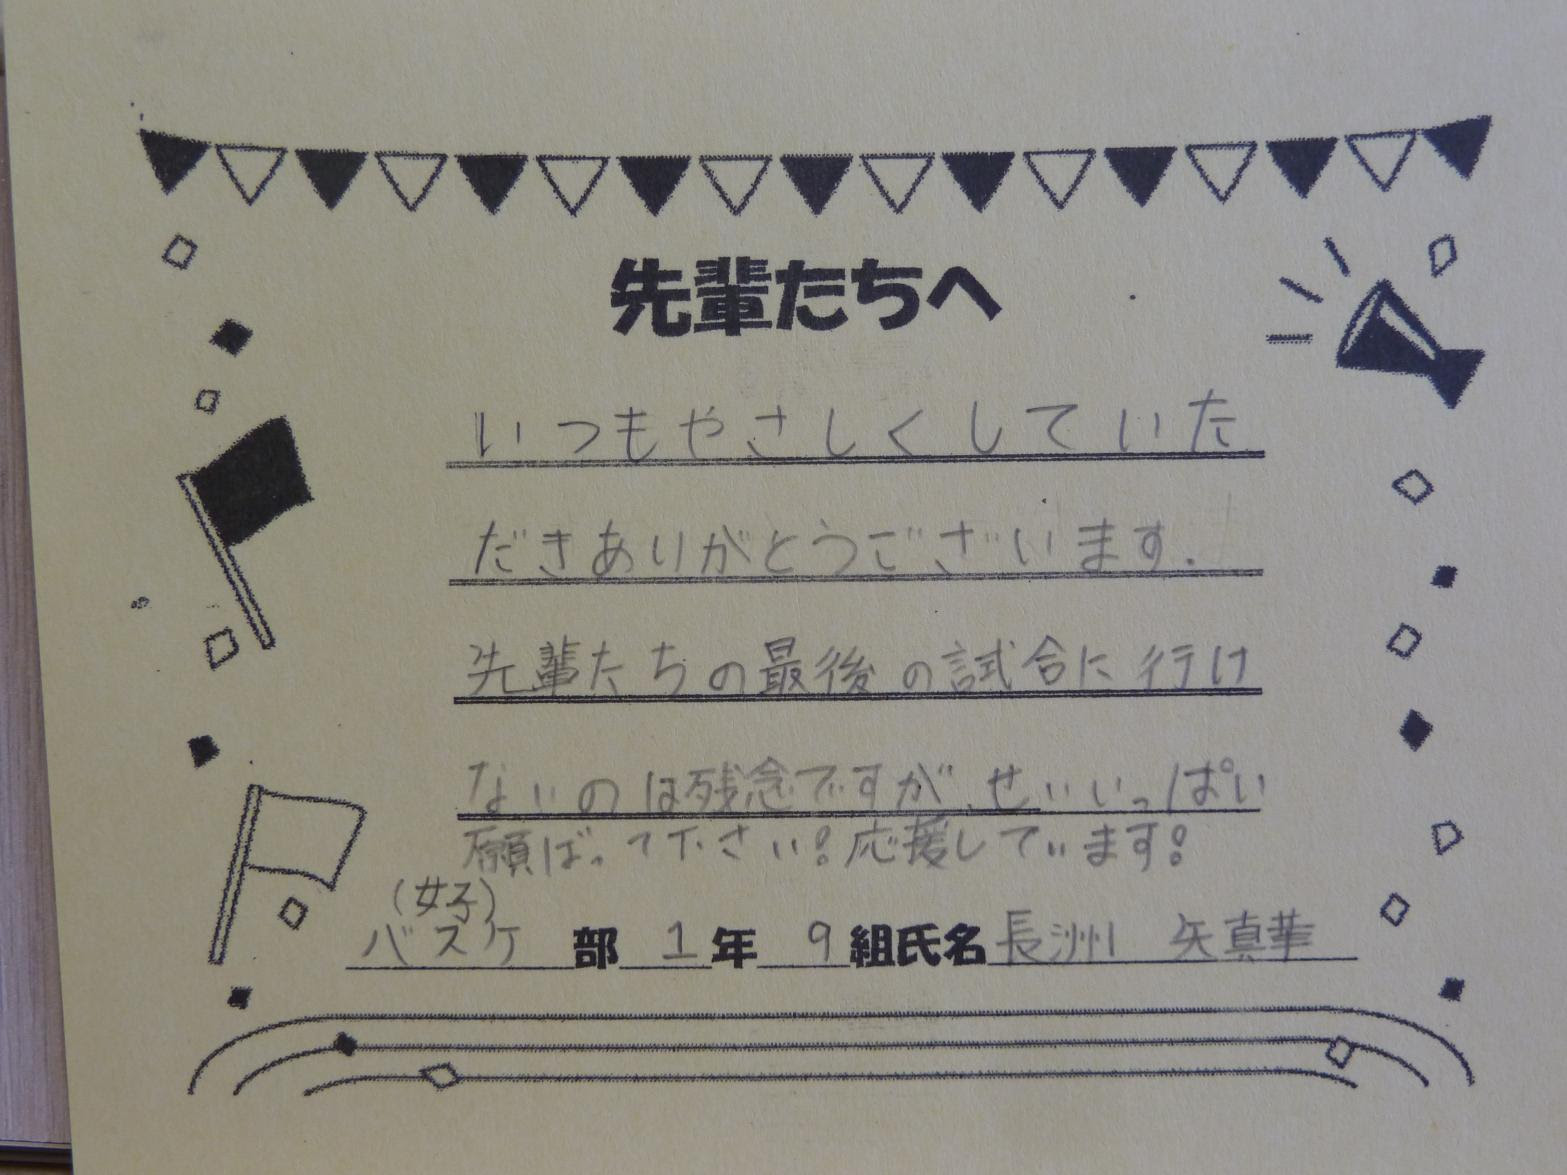 先輩たちへ
いつもやさしくしていた
だきありがとうございます.
先輩たちの最後の試合に行け
ないのは残念ですが、せいいっぱい
願ばって下さい!応援しています!
(女子)
バスケ部 1年 9組氏名 長洲 矢真華